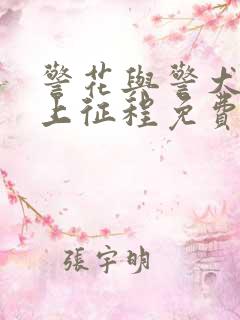 警花與警犬
上征程免費
張宇明